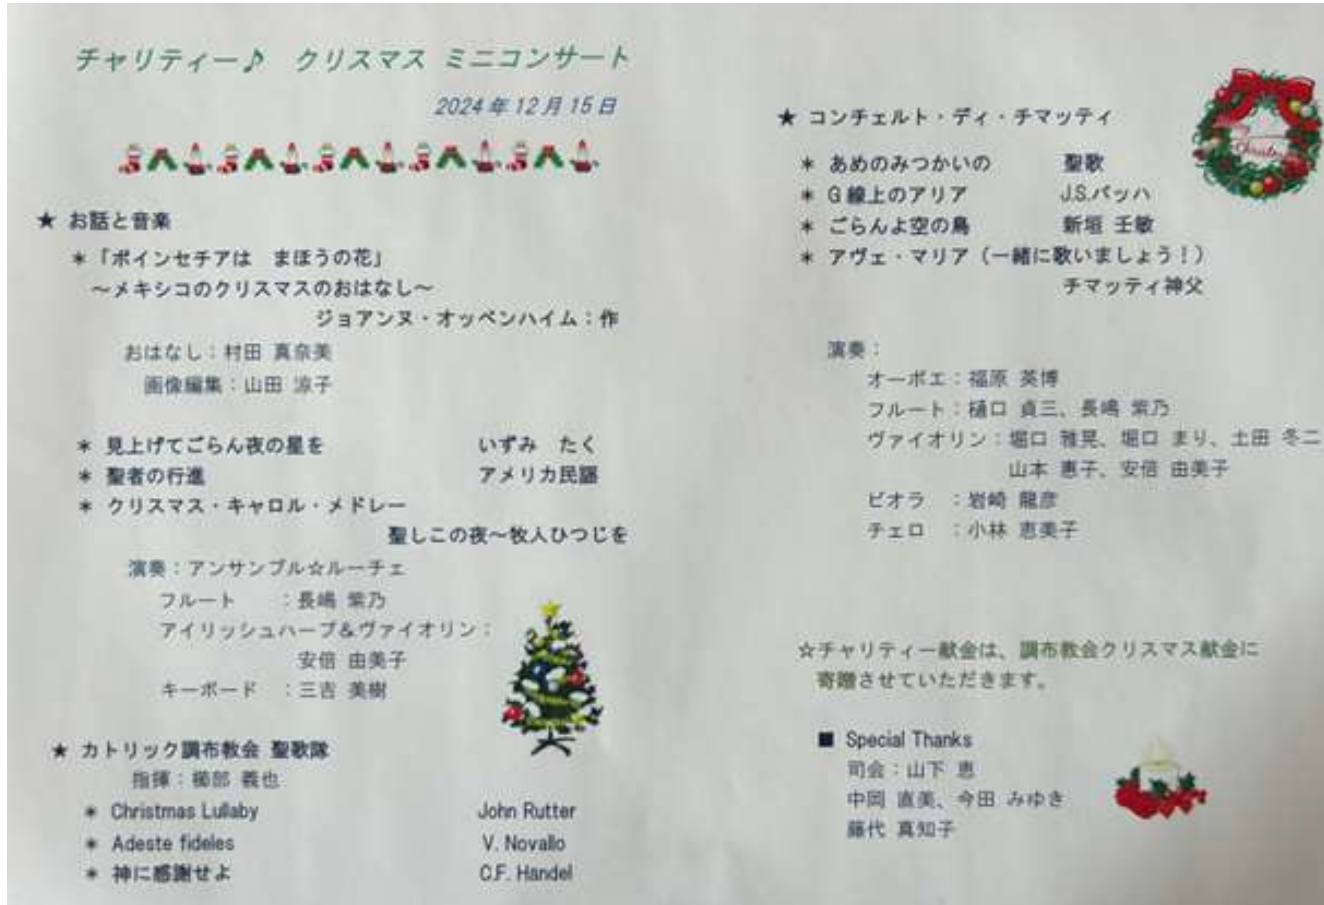 チャリティー♪ クリスマス ミニコンサート
2024年12月15日
★ お話と音楽
＊「ポインセチアは まほうの花」
～メキシコのクリスマスのおはなし～
ジョアンヌ・オッペンハイム：作
おはなし：村田 真奈美
画像編集：山田 涼子
＊ 見上げてごらん夜の星を いずみ たく
＊ 聖者の行進 アメリカ民謡
＊ クリスマス・キャロル・メドレー
聖しこの夜～牧人ひつじを
演奏：アンサンブル☆ルーチェ
フルート ：長嶋 紫乃
アイリッシュハープ&ヴァイオリン：
安倍 由美子
キーボード ：三吉 美樹
★ カトリック調布教会 聖歌隊
指揮：櫛部 義也
＊ Christmas Lullaby John Rutter
＊ Adeste fideles V. Novallo
＊ 神に感謝せよ C.F. Handel
★ コンチェルト・ディ・チマッティ
＊ あめのみつかいの 聖歌
＊ G線上のアリア J.S.バッハ
＊ ごらんよ空の鳥 新垣 壬敏
＊ アヴェ・マリア（一緒に歌いましょう！）
チマッティ神父
演奏：
オーボエ：福原 英博
フルート：樋口 貞三、長嶋 紫乃
ヴァイオリン：堀口 雅晃、堀口 まり、土田 冬二
山本 惠子、安倍 由美子
ビオラ ：岩崎 龍彦
チェロ ：小林 恵美子
☆チャリティー献金は、調布教会クリスマス献金に
寄贈させていただきます。
■ Special Thanks
司会：山下 恵
中岡 直美、今田 みゆき
藤代 真知子